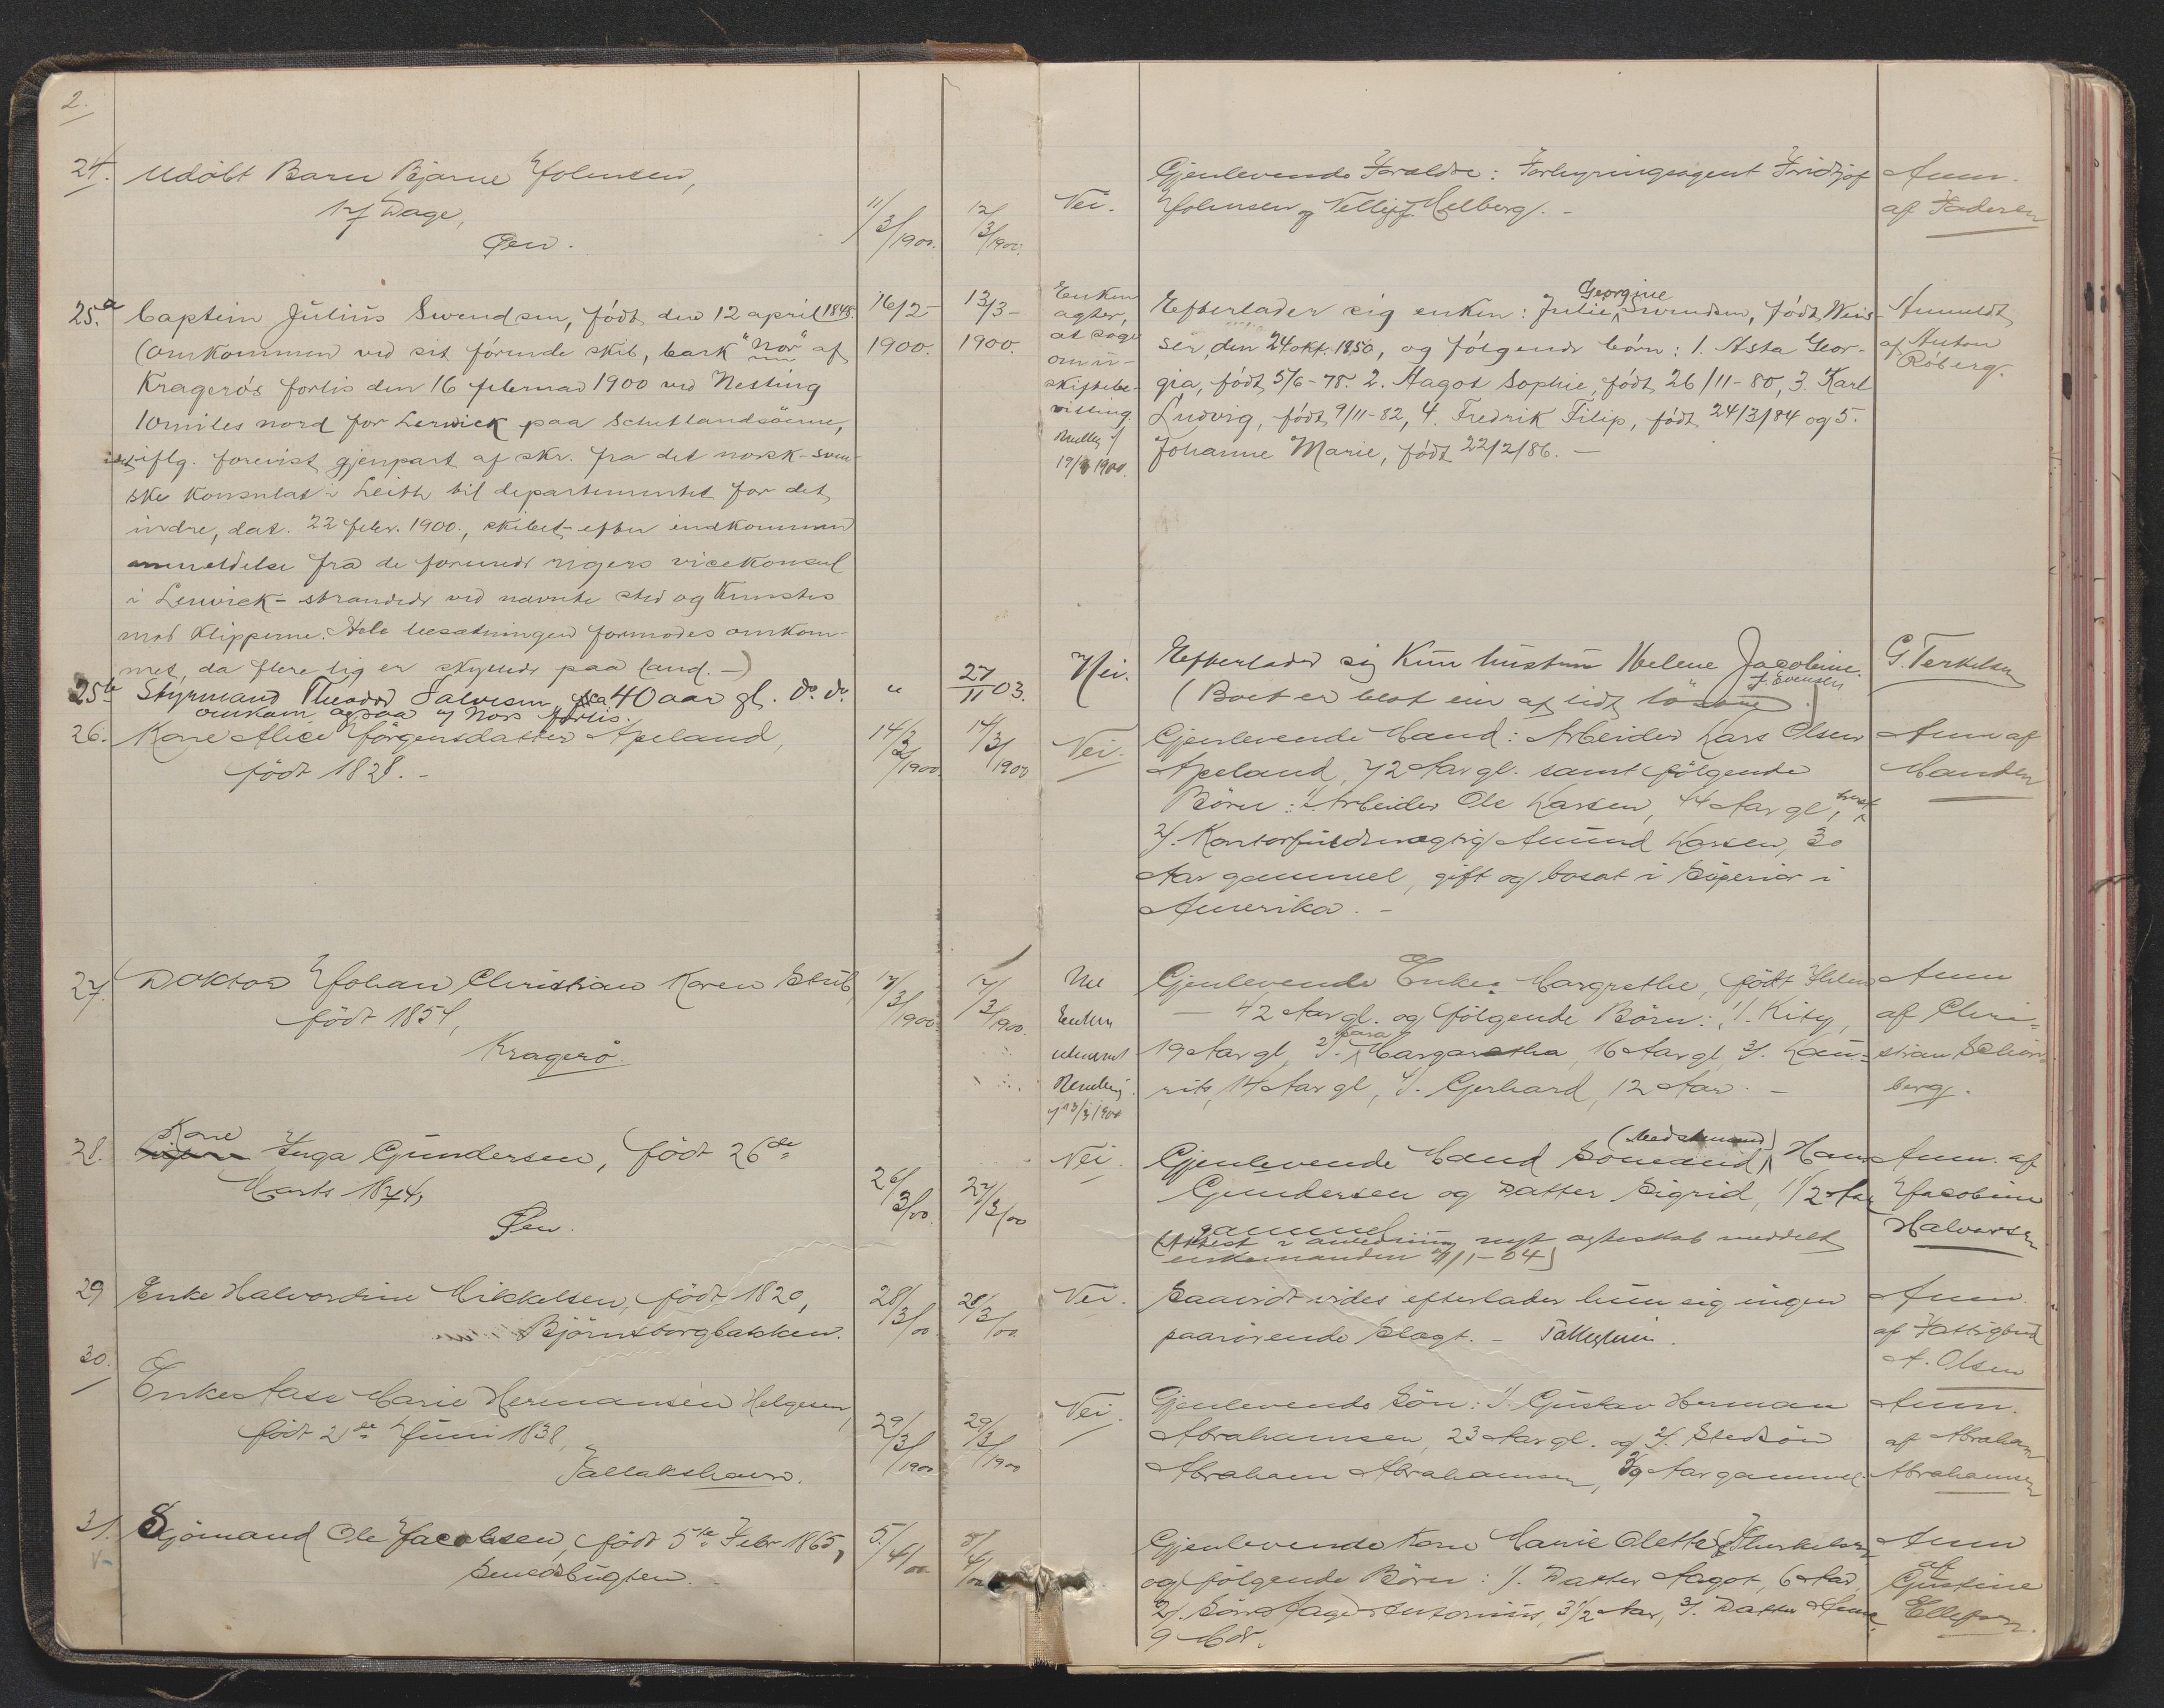 2.
24. Udöbt Barn Bjarne Johnsen,
17 Dage,
Øen.
11/3/1900.
12/3/1900.
Nei.
Gjenlevende Forældre: Forhyringsagent Fridtjof
Johnsen og Nelly f. Melberg. -
Anm.
af Faderen
25.a Captein Julius Svendsen, födt den 12 april 1848.
(omkommen ved sit förende skib, bark "Nor" af
Kragerös forlis den 16 februar 1900 ved Nesting
10 miles nord for Lerwick paa Schetlandsöerne,
iflg. forevist gjenpart af skr. fra det norsk-sven-
ske konsulat i Leith til departementet for det
indre, dat. 22 febr. 1900., skibet efter indkommen
anmeldelse fra de forenede rigers vicekonsul
i Lerwick - strandede ved nævnte sted og knustes
mod klipperne. Hele besætningen formodes omkom-
met, da flere lig er skyllede paa land. -)
16/2-
1900.
13/3-
1900.
Enken
agter
at söge
om u-
skiftebe-
villing.
Meddelt
19/3 1900.
Efterlader sig enken: Julie Georgine Svendsen, födt Weis-
ser, den 24 okt. 1850, og fölgende börn: 1. Asta Geor-
gia, födt 5/6-78. 2. Aagot Sophie, födt 26/11-80, 3. Karl
Ludvig, födt 9/11-82, 4. Fredrik Filip, födt 24/3/84 og 5.
Johanne Marie, födt 22/2/86. -
Anmeldt
af Anton
Röberg.
25b Styrmand Theodor Salvesen, ca 40 aar gl. do. do.
omkom ogsaa ved Nors forlis.
"
27/11 03.
Nei.
Efterlader sig kun hustru Helene Jacobine
f. Evensen
(Boet er blot ein af lidt lösöre.)
G. Terkelsen
26. Kone Alice Jörgensdatter Apeland,
födt 1828. -
14/3/1900.
14/3/1900
Nei.
Gjenlevende Mand: Arbeider Lars Olsen
Apeland, 72 Aar gl. samt fölgende
Börn: 1/. Arbeider Ole Larsen, 44 Aar gl,
2/. Kontorfuldmægtig Amund Larsen, 30
Aar gammel, gift og bosat i Superior i
Amerika. -
Anm af
Manden
27. Doktor Johan Christian Koren Stub,
födt 1854,
Kragerö.
17/3/1900
17/3/1900.
Enken
Meddelt
Gjenlevende Enke: Margrethe, födt
- 42 Aar gl. og fölgende Börn: 1/. Kitty,
19 Aar gl, 2/. Margaretha, 16 Aar gl, 3/. Lau-
rits, 14 Aar gl, 4/. Gerhard, 12 Aar. -
Anm
af Chri-
stian Schön-
berg.
28. Kone Inga Gundersen, födt 26de
Marts 1874,
Øen.
26/3/00.
27/3/00
Nei.
Gjenlevende Mand Sömand (Bedstmand) Hans
Gundersen og Datter Sigrid, 1 1/2 Aar
gammel
(Attest i anledning nyt ægteskab meddelt
enkemanden 11/1-04)
Anm. af
Jacobine
Halvorsen
29 Enke Halvordine Mikkelsen, födt 1820,
Björnsborgbakken.
28/3/00
28/3/00.
Nei.
Saavidt vides efterlader hun sig ingen
paarörende Slægt. -
Anm.
af Fattigbud
A. Olsen
30. Enke Aase Marie Hermansen Helgesen,
födt 2de Juni 1838,
Tallakshavn.
29/3/1900
29/3/1900
Nei.
Gjenlevende Sön: 1/. Gustav Herman
Abrahamsen, 23 Aar gl. og 2/. Stedsön
Abraham Abrahamsen, 39 Aar gammel.
Anm.
af Abraham
Abrahamsen
31. Sjömand Ole Jacobsen, födt 5te Febr 1865,
Smedsbugten.
5/4/00.
5/4/00
Gjenlevende Kone Marie Olette f. Therkelsen
og fölgende Börn: 1/. Datter Aagot, 6 Aar,
2/. Sön Aage Antonius, 3 1/2 Aar, 3/. Datter Anna
9 Mdr.
Anm
af
Gustine
Ellefsen.